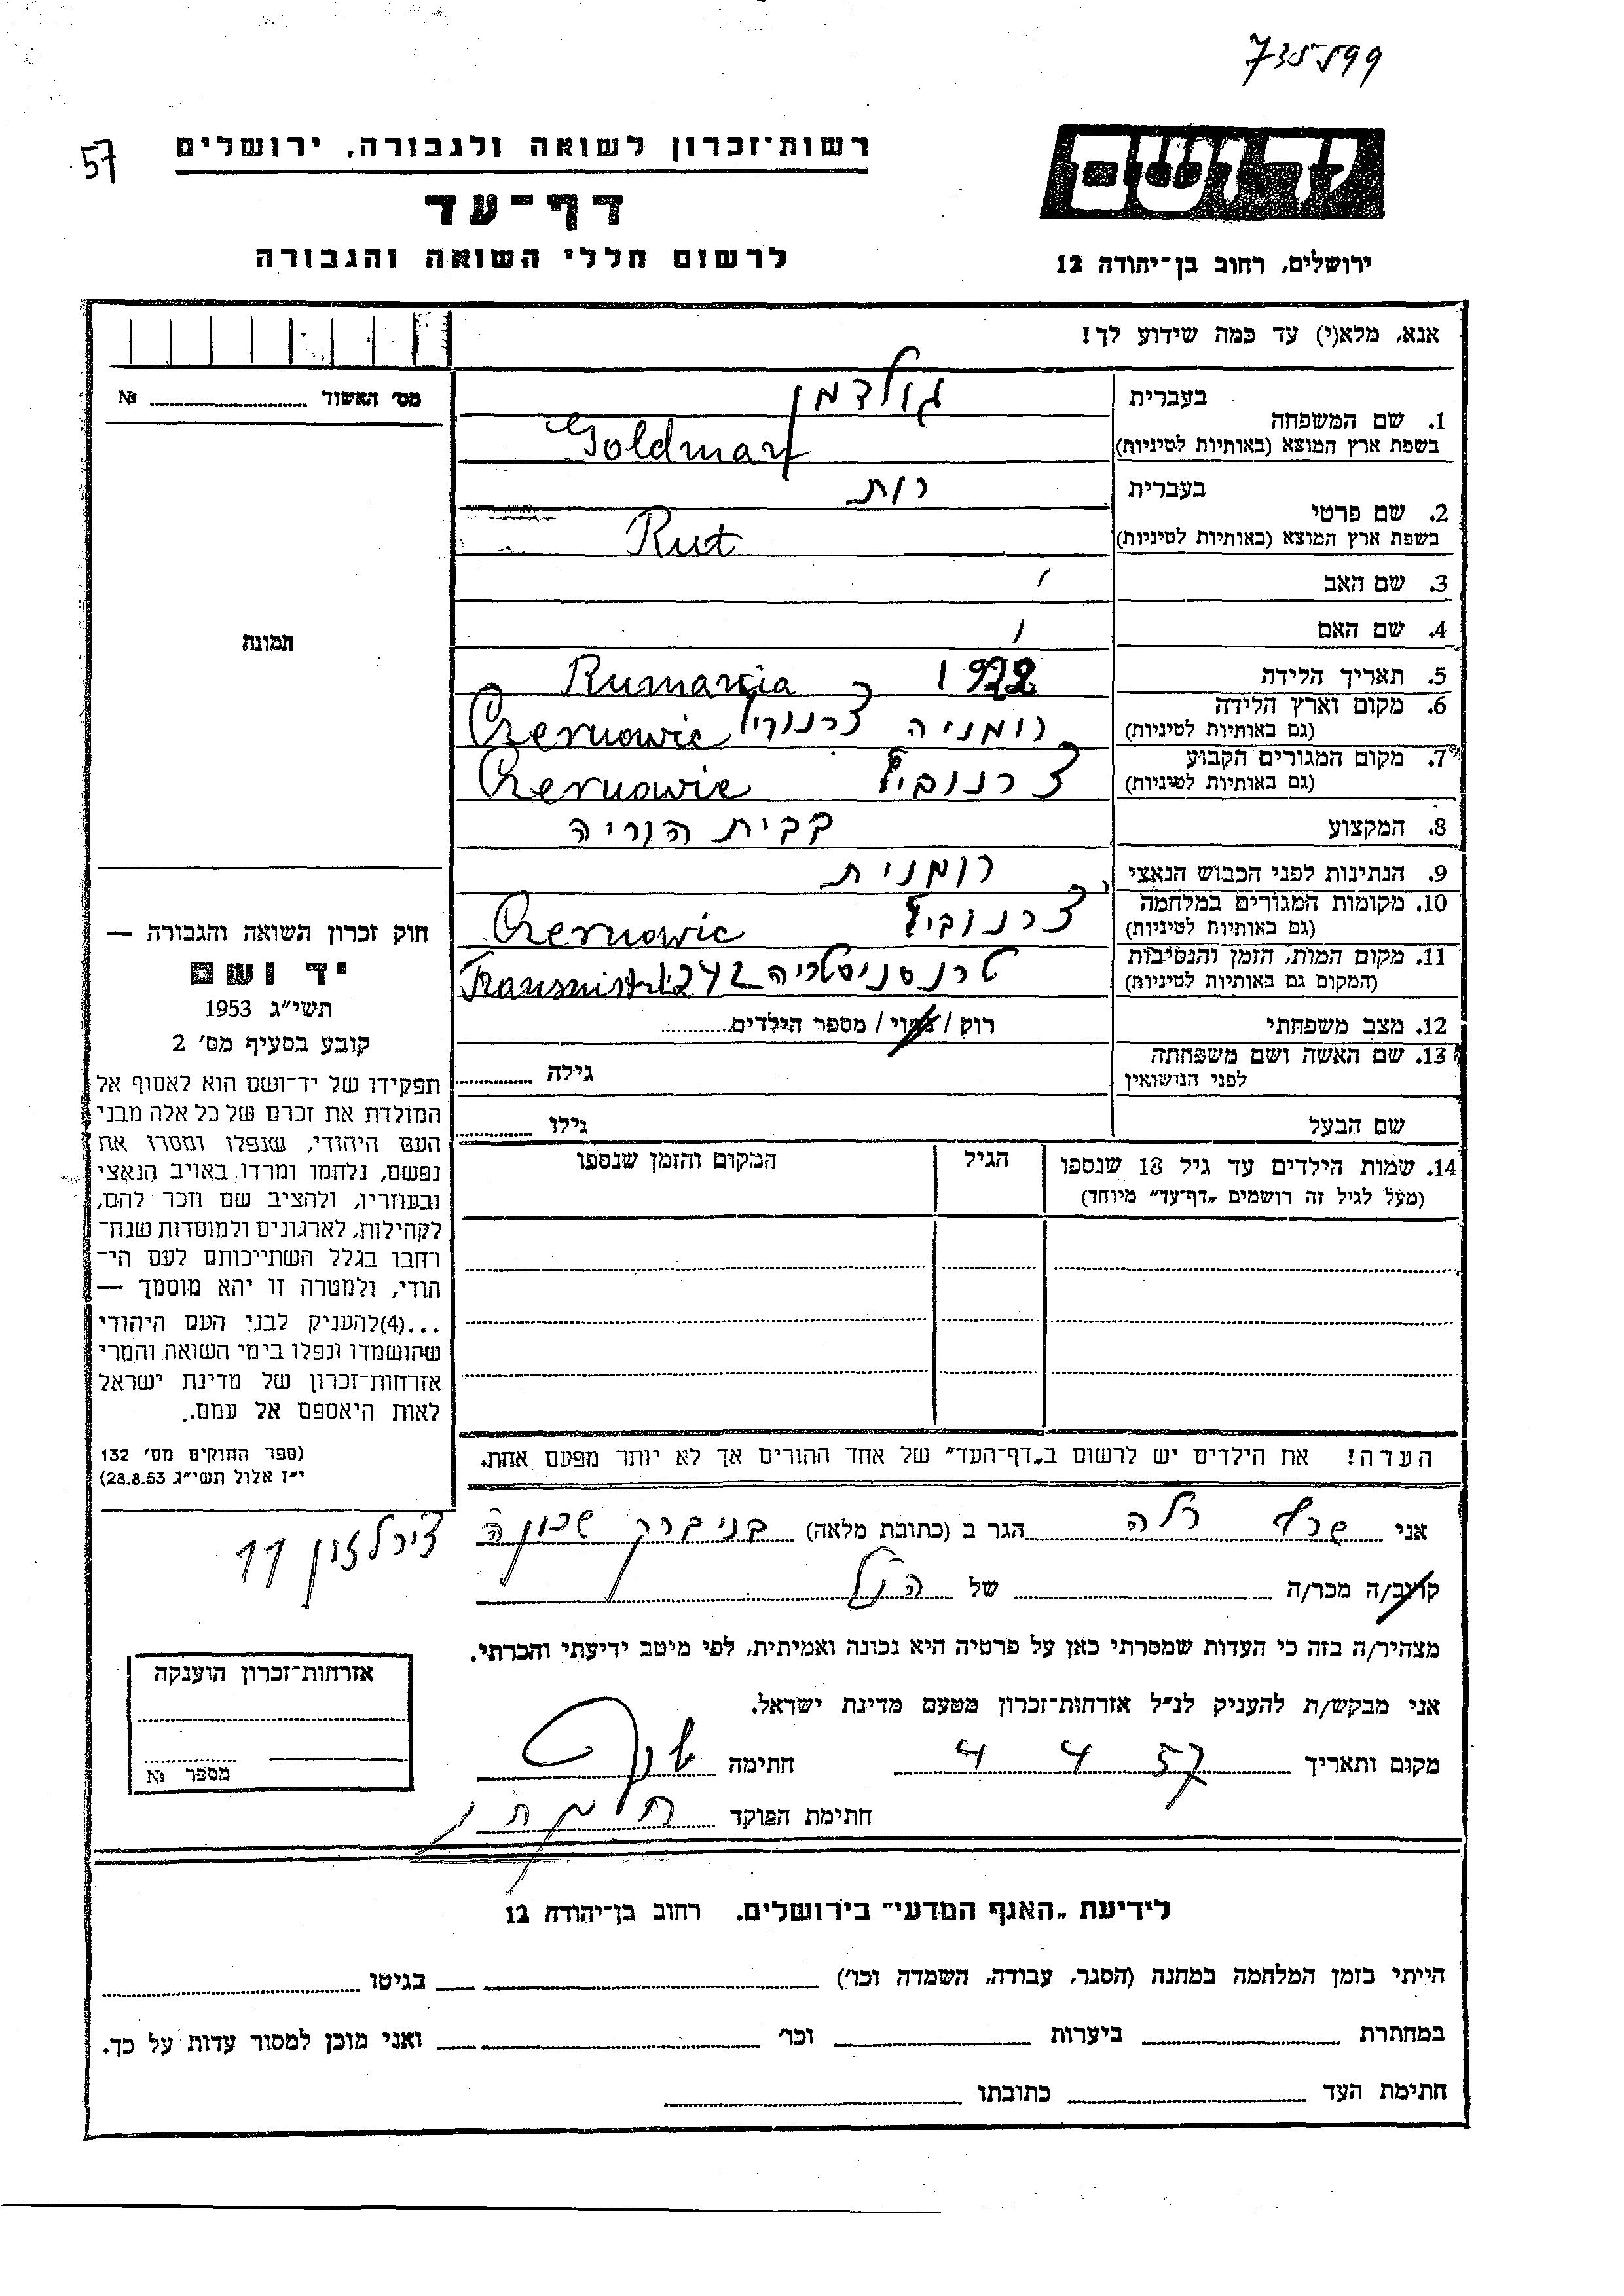 735599
57
רשות־זכרון לשואה ולגבורה, ירושלים
דף־עד
לרשום חללי השואה והגבורה
יד ושם
ירושלים, רחוב בן־יהודה 12
אנא, מלא(י) עד כמה שידוע לך!
מס׳ האשור № 
1. שם המשפחה
בעברית גולדמן
בשפת ארץ המוצא (באותיות לטיניות) Goldman
2. שם פרטי
בעברית רות
בשפת ארץ המוצא (באותיות לטיניות) Rut
3. שם האב
4. שם האם
תמונה
5. תאריך הלידה 1922 Rumania
6. מקום וארץ הלידה
(גם באותיות לטיניות) רומניה Czernowic
7. מקום המגורים הקבוע
(גם באותיות לטיניות) Czernowic
8. המקצוע בבית הוריה
9. הנתינות לפני הכבוש הנאצי רומנית
10. מקומות המגורים במלחמה
(גם באותיות לטיניות) Czernowic
11. מקום המות, הזמן והנסיבות
(המקום גם באותיות לטיניות) טרנסניסטריה
12. מצב משפחתי רוק / נשוי / מספר הילדים
13. שם האשה ושם משפחתה
לפני הנישואין גילה
שם הבעל גילו
14. שמות הילדים עד גיל 18 שנספו הגיל המקום והזמן שנספו
(מעל לגיל זה רושמים „דף־עד״ מיוחד)
חוק זכרון השואה והגבורה —
יד ושם
תשי״ג 1953
קובע בסעיף מס׳ 2
תפקידו של יד־ושם הוא לאסוף אל
המולדת את זכרם של כל אלה מבני
העם היהודי, שנפלו ומסרו את
נפשם, נלחמו ומרדו באויב הנאצי
ובעוזריו, ולהציב שם וזכר להם,
לקהילות, לארגונים ולמוסדות שנח־
רחבו בגלל השתייכותם לעם הי־
הודי, ולמטרה זו יהא מוסמך —
...(4)להעניק לבני העם היהודי
שהושמדו ונפלו בימי השואה והמרי
אזרחות־זכרון של מדינת ישראל
לאות היאספם אל עמם.
(ספר החוקים מס׳ 132
י״ז אלול תשי״ג 28.8.53)
הערה! את הילדים יש לרשום ב„דף־העד״ של אחד ההורים אך לא יותר מפעם אחת.
אני הגר ב (כתובת מלאה) בני ברק שכונה
11
קרוב/ה מכר/ה של הנ״ל
מצהיר/ה בזה כי העדות שמסרתי כאן על פרטיה היא נכונה ואמיתית, לפי מיטב ידיעתי והכרתי.
אני מבקש/ת להעניק לנ״ל אזרחות־זכרון מטעם מדינת ישראל.
מקום ותאריך 4 4 57 חתימה
חתימת הפוקד
אזרחות־זכרון הוענקה
מספר №
לידיעת „האגף המדעי״ בירושלים. רחוב בן־יהודה 12
הייתי בזמן המלחמה במחנה (הסגר, עבודה, השמדה וכו׳) בגיטו
במחתרת ביערות וכו׳ ואני מוכן למסור עדות על כך.
חתימת העד כתובתו